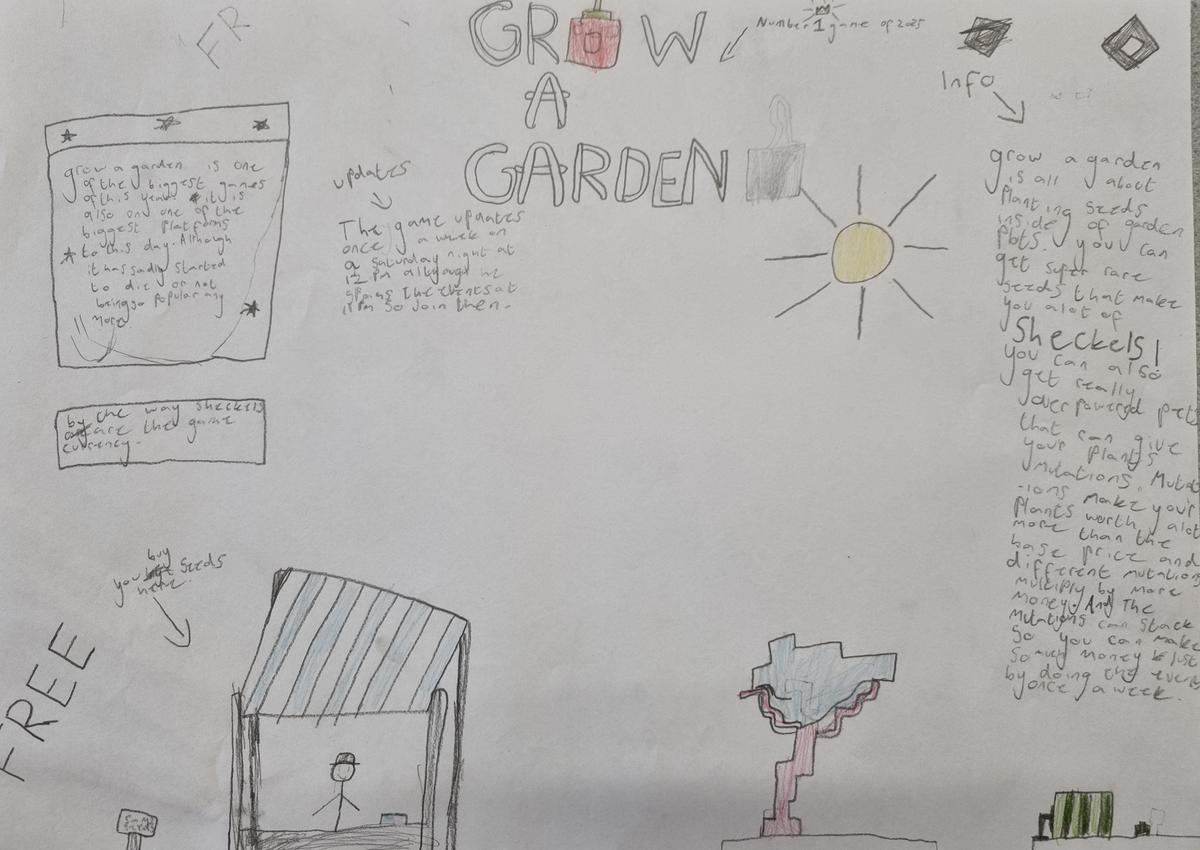 FR
GROW
A
GARDEN
Number 1 game of 2025
Info
grow a garden is one
of the biggest games
of this year. it is
also on one of the
biggest platforms
to this day. Although
it has sadly started
to die or not
being so popular any
more
by the way sheckels
are the game
currency.
updates
The game updates
once a week on
a Saturday night at
12 pm although
the events at
11 pm so join then.
grow a garden
is all about
planting seeds
inside of garden
plots. you can
get super rare
seeds that make
you alot of
Sheckels!
you can also
get really
overpowered pets
that can give
your plants
mutations. Mutat
-ions make your
plants worth alot
more than the
base price and
different mutations
multiply by more
money. And The
mutations can stack
So you can make
so much money just
by doing the event
once a week.
buy
you seeds
here.
FREE